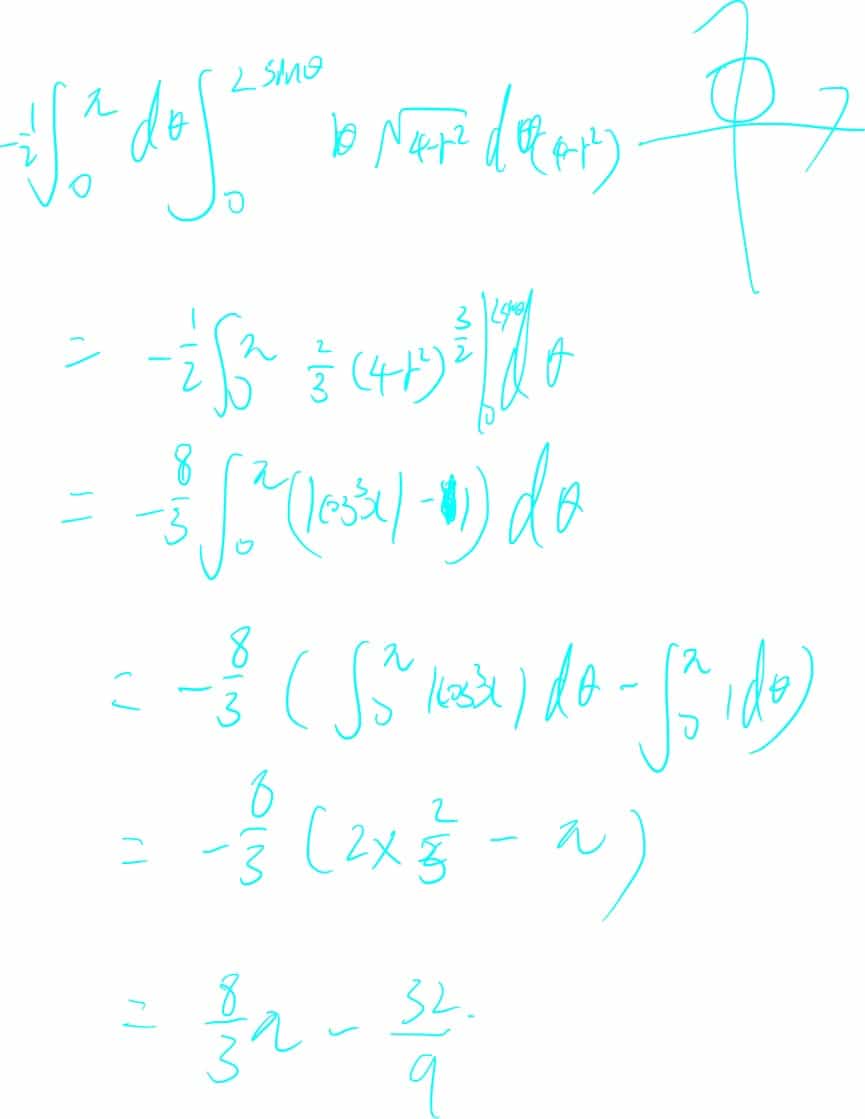 -\frac{1}{2} \int_0^π dθ \int_0^{2sinθ} \sqrt{4-r^2} d(4-r^2)
= -\frac{1}{2} \int_0^π \frac{2}{3} (4-r^2)^{\frac{3}{2}} |_0^{2sinθ} dθ
= -\frac{8}{3} \int_0^π (|cos^3x| - 1) dθ
= -\frac{8}{3} ( \int_0^π |cos^3x| dθ - \int_0^π 1 dθ )
= -\frac{8}{3} ( 2 × \frac{2}{3} - π )
= \frac{8}{3}π - \frac{32}{9}.